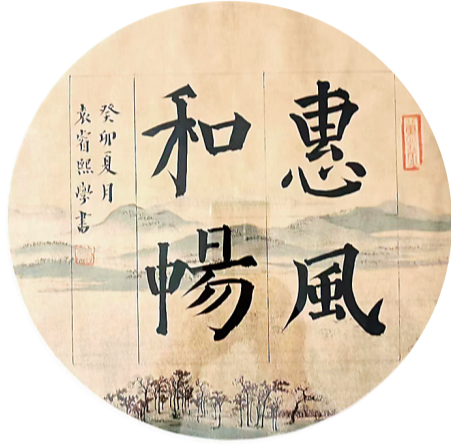 惠風
和暢
癸卯夏月
袁睿熙學書